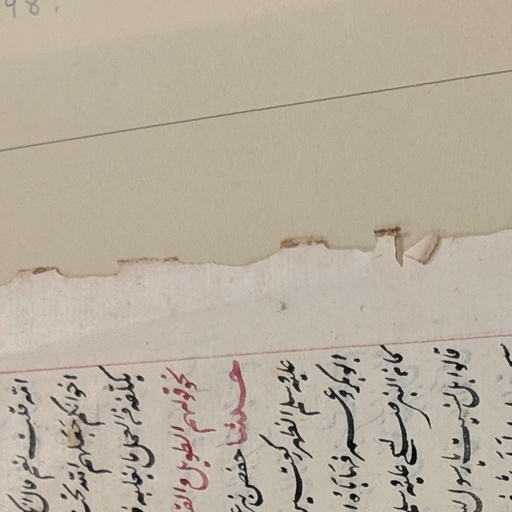 امّه قلت نعم قال انك
اخوانكم جعلهم الله تحت
يكلفه من العمل ما يغلبه ف
نحو قولهم الطويل والق
حدثنا حفص بن ع
عليه وسلم الظهر ركعتين
ابو بكر وعمر فهابا ه ا
كان النبي صلى الله عليه وسلم
قالوا بل نسيت يا رسول الله